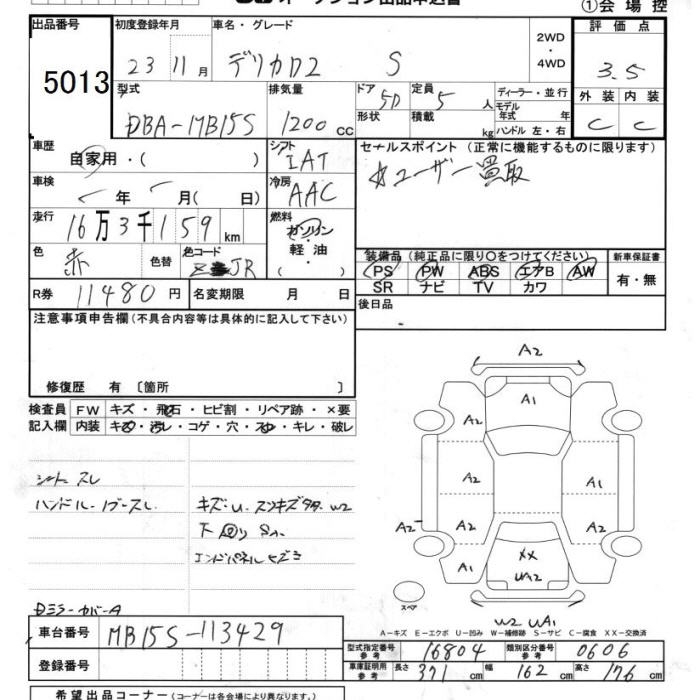 オークション出品申込書
①会場控
出品番号
5013
初度登録年月
23 11月
車名・グレード
デリカD2 S
2WD
・
4WD
評価点
3.5
型式
DBA-MB15S
排気量
1200 cc
ドア
5D
形状
定員
5 人
積載
kg
ディーラー・並行
モデル
年式 年
ハンドル 左・右
外装
C
内装
C
車歴
自家用・( )
シフト
IAT
セールスポイント (正常に機能するものに限ります)
☆ユーザー買取
車検
年 月( 日)
冷房
AAC
走行
16万3千159km
燃料
ガソリン
・
軽・油
( )
色
赤
色替
色コード
ZJR
装備品 (純正品に限り○をつけてください)
PS PW ABS エアB AW
SR ナビ TV カワ
新車保証書
有・無
R券
11480円
名変期限 月 日
後日品
注意事項申告欄(不具合内容等は具体的に記入して下さい)
修復歴 有〔箇所 〕
検査員
記入欄
FW キズ・飛石・ヒビ割・リペア跡・×要
内装 キズ・汚レ・コゲ・穴・スレ・キレ・破レ
シート スレ
ハンドル・ノブスレ
キズ・U・スリキズ多々 W2
下回り サビ
エンドパネル ヒズミ
Dミラーカバー A
A2
A1
A2
A2
A1
A2
A2
A2
A1
XX
UA2
A1
スペア
W2 UA1
A-キズ E-エクボ U-凹み W-補修跡 S-サビ C-腐食 XX-交換済
車台番号
MB15S-113429
型式指定番号
参考
16804
類別区分番号
参考
0606
登録番号
車庫証明用
参考
長さ 371 cm
幅 162 cm
高さ 176 cm
希望出品コーナー (コーナーは各会場により異なります)